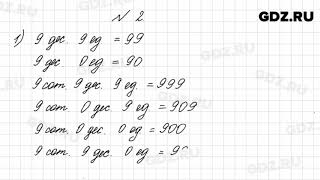 GDZ.RU
N 2
1) 9 дес. 9 ед = 99
9 дес 0 ед = 90
9 сот. 9 дес. 9 ед. = 999
9 сот 0 дес 9 ед = 909
9 сот. 0 дес. 0 ед = 900
9 сот. 9 дес. 0 ед = 9
GDZ.RU